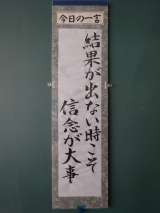 今日の一言
結果が出ない時こそ
信念が大事